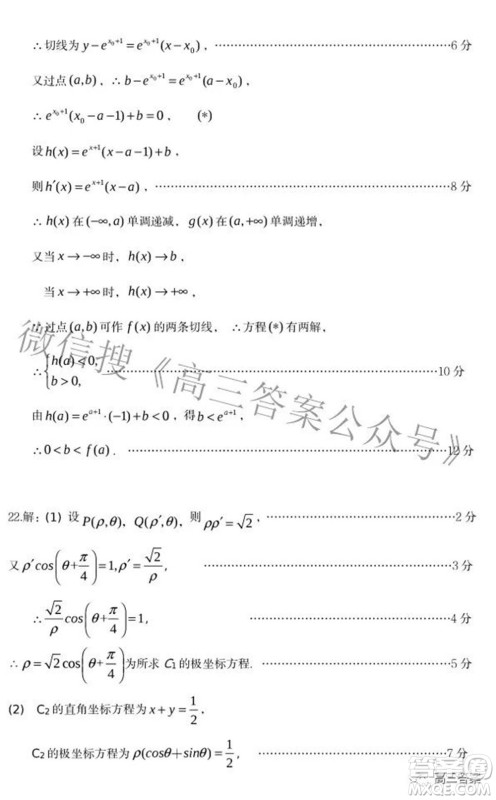 ∴切线为 y-e^{x₀+1}=e^{x₀+1}(x-x₀)，……………………………………6 分
又过点 (a,b)，∴b-e^{x₀+1}=e^{x₀+1}(a-x₀)
∴e^{x₀+1}(x₀-a-1)+b=0，　(*)
设h(x)=e^{x+1}(x-a-1)+b，
则h′(x)=e^{x+1}(x-a)，……………………………………8 分
∴h(x)在(-∞,a)单调递减，g(x)在(a,+∞)单调递增，
又当x→-∞时，h(x)→b，
当x→+∞时，h(x)→+∞，
∵过点(a,b)可作 f(x)的两条切线，∴方程(*)有两解，
∴{h(a)<0, b>0,……………………………………10 分
由h(a)=e^{a+1}·(-1)+b<0，得b<e^{a+1}，
∴0<b<f(a)．……………………………………12 分
22.解：(1) 设 P(ρ,θ)，Q(ρ′,θ)，则 ρρ′=√2，……………………………………2 分
又ρ′cos(θ+π/4)=1,ρ′=√2/ρ，……………………………………3 分
∴√2/ρ cos(θ+π/4)=1，……………………………………4 分
∴ρ=√2cos(θ+π/4)为所求 C₁的极坐标方程.……………………………………5 分
(2) C₂的直角坐标方程为x+y=1/2，
C₂的极坐标方程为ρ(cosθ+sinθ)=1/2，……………………………………7 分
微信搜《高三答案公众号》
高三答案